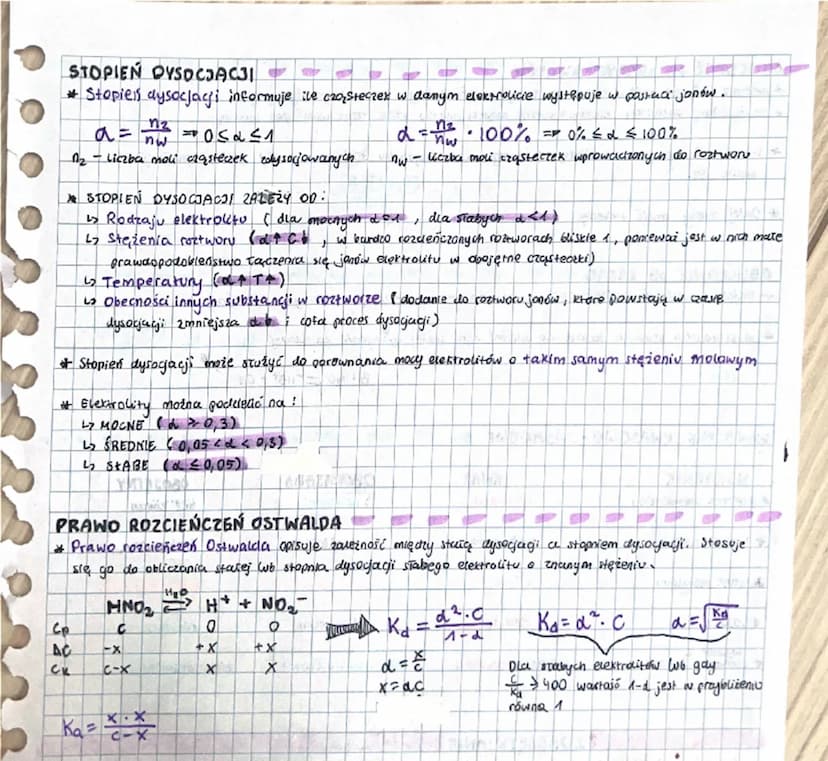 STOPIEŃ DYSOCJACJI
* Stopień dysocjacji informuje ile cząsteczek w danym elektrolicie występuje w postaci jonów.
α = nz/nw ⇒ 0 ≤ α ≤ 1
α = nz/nw · 100% ⇒ 0% ≤ α ≤ 100%
nz – liczba moli cząsteczek zdysocjowanych
nw – liczba moli cząsteczek wprowadzonych do roztworu
* STOPIEŃ DYSOCJACJI ZALEŻY OD:
↳ Rodzaju elektrolitu (dla mocnych α=1, dla słabych α<1)
↳ Stężenia roztworu (α↑ C↓, w bardzo rozcieńczonych roztworach bliskie 1, ponieważ jest w nich małe
prawdopodobieństwo łączenia się jonów elektrolitu w obojętne cząsteczki)
↳ Temperatury (α↑ T↑)
↳ Obecności innych substancji w roztworze (dodanie do roztworu jonów, które powstają w czasie
dysocjacji zmniejsza α↓ i cofa proces dysocjacji)
* Stopień dysocjacji może służyć do porównania mocy elektrolitów o takim samym stężeniu molowym
* Elektrolity można podzielić na:
↳ MOCNE (α ≥ 0,3)
↳ ŚREDNIE (0,05 < α < 0,3)
↳ SŁABE (α ≤ 0,05)
PRAWO ROZCIEŃCZEŃ OSTWALDA
* Prawo rozcieńczeń Ostwalda opisuje zależność między stałą dysocjacji a stopniem dysocjacji. Stosuje
się go do obliczania stałej lub stopnia dysocjacji słabego elektrolitu o znanym stężeniu.
HNO₂ ⇌ H₂O H⁺ + NO₂⁻
Cp C 0 0
ΔC -x +x +x
Ck c-x x x
Kd = α²·C/1-α
α = x/c
x = αC
Kd = α²·C
α = √Kd/c
Dla słabych elektrolitów lub gdy
c/Kd ≥ 400 wartość 1-α jest w przybliżeniu
równa 1
Ka = x·x/c-x